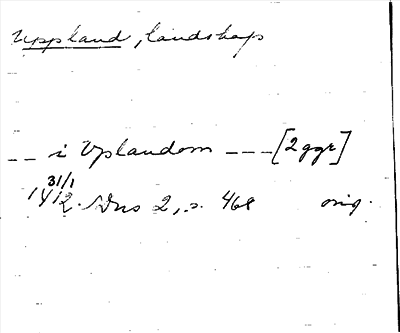 Uppland, landskap
-- i Vplandom --- [2 ggr]
31/1
1412. SDns 2, s. 468 orig.